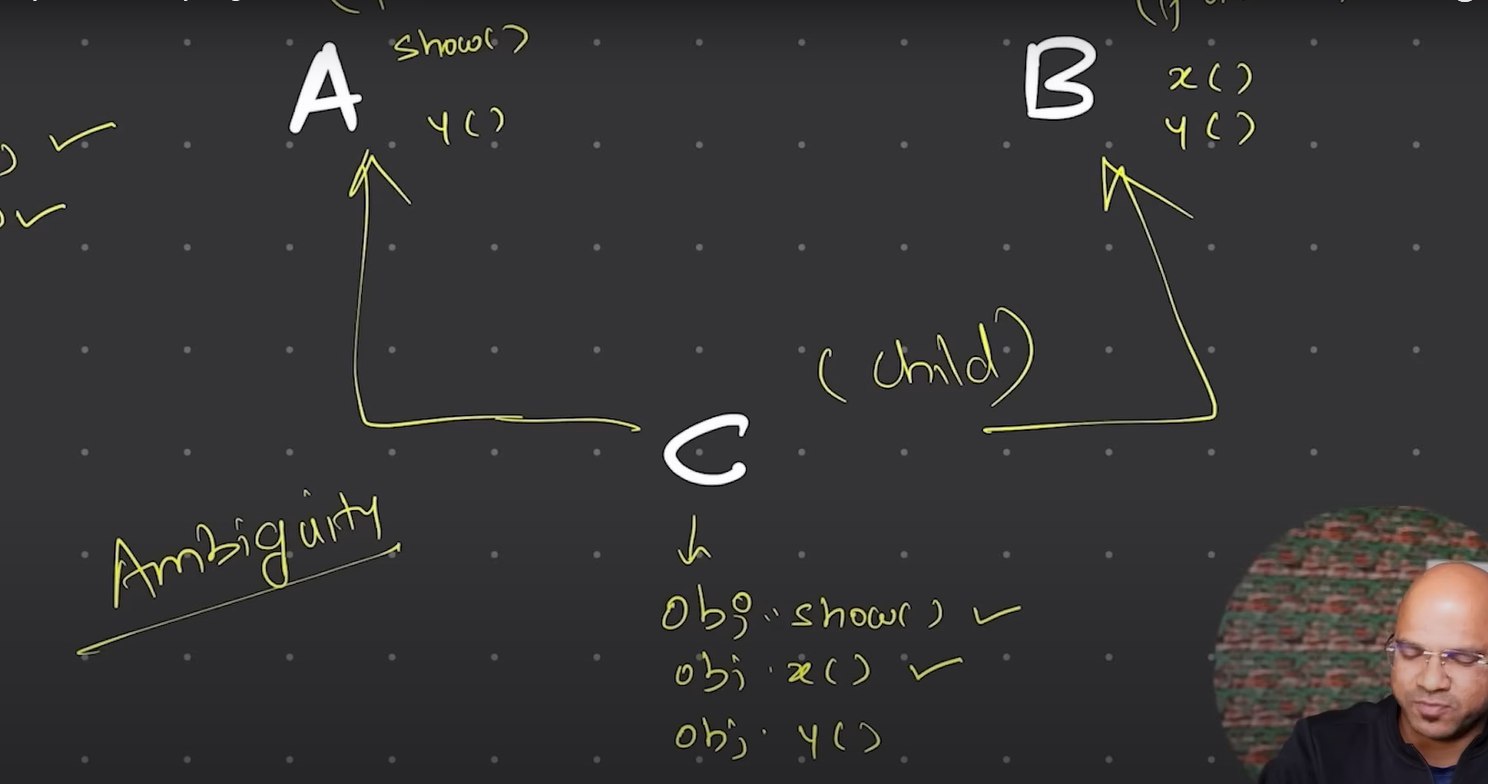 A show()
y()
B x()
y()
(child)
C
Ambiguity
obj. show() ✓
obj. x() ✓
obj. y()